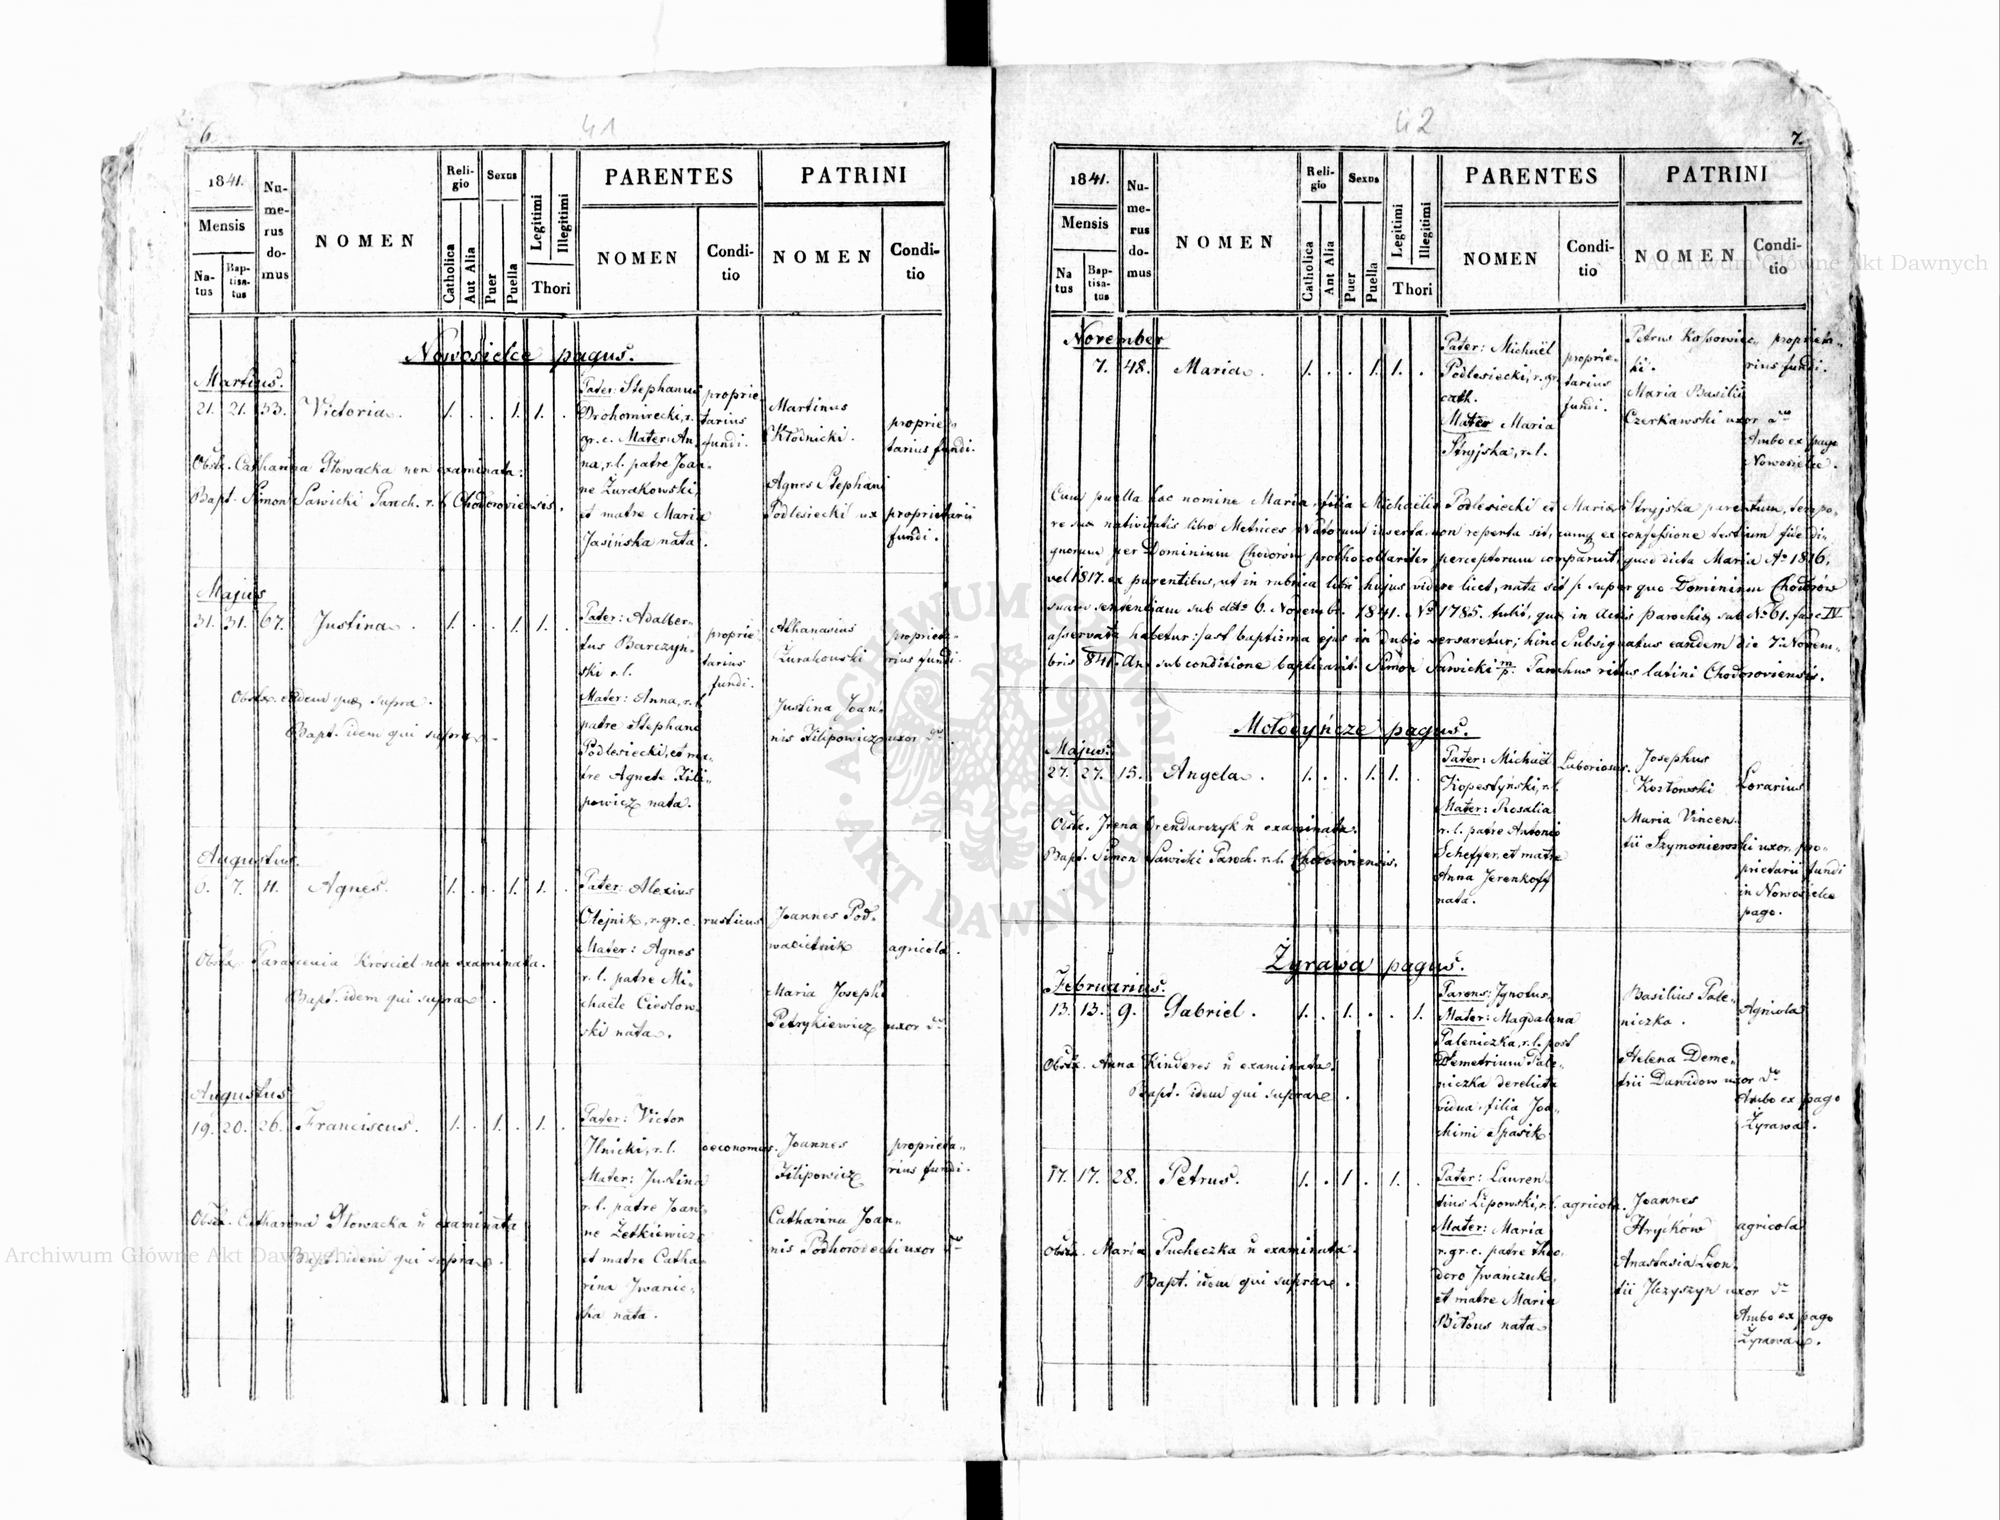 6.
41
1841.
Mensis
Na-
tus
Bap-
tisa-
tus
Nu-
me-
rus
do-
mus
NOMEN
Reli-
gio
Catholica
Aut Alia
Sexus
Puer
Puella
Legitimi
Illegitimi
Thori
PARENTES
NOMEN
Condi-
tio
PATRINI
NOMEN
Condi-
tio
Nowosielce pagus.
Martius.
21. 21. 53. Victoria. 1. . . 1. 1. .
Pater: Stephanus
Drohomirecki, r.
gr. c. Mater: An-
na, r. l. patre Joan-
ne Żurakowski,
et matre Maria
Jasińska nata.
proprie-
tarius
fundi.
Martinus
Kłodnicki.
proprie-
tarius fundi.
Agnes Stephani
Podlesiecki ux proprietarii
fundi.
Obstx. Catharina Słowacka non examinata.
Bapt. Simon Sawicki Paroch. r. l. Chodoroviensis.
Majus
31. 31. 67. Justina. 1. . . 1. 1. .
Pater: Adalber-
tus Barczyń-
ski r. l.
Mater: Anna, r. l.
patre Stephano
Podlesiecki, et ma-
tre Agnete Fili-
powicz nata.
proprie-
tarius
fundi.
Athanasius
Żurakowski
proprieta-
rius fundi.
Justina Joan-
nis Filipowicz uxor dto.
Obstx. eadem quæ supra.
Bapt. idem qui supra.
Augustus.
7. 11. Agnes. 1. . . 1. 1. .
Pater: Alexius
Olejnik, r. gr. c. rusticus
Mater: Agnes
r. l. patre Mi-
chaele Cieslow-
ski nata.
Joannes Pod-
agricola.
Maria Josephi
Petrykiewicz uxor dto
Obstx. Krościel non examinata.
Bapt. idem qui supra.
Augustus
19. 20. 26. Franciscus. 1. . 1. . 1. .
Pater: Victor
Ilnicki, r. l. oeconomus.
Mater: Justina
r. l. patre Joan-
ne Zetkiewicz
et matre Catha-
rina Iwanic-
ka nata.
Joannes
Filipowicz
proprieta-
rius fundi.
Catharina Joan-
nis Podhorodecki uxor dto
Obstx. Catharina Słowacka n examinata
Bapt. idem qui supra.
7.
42
1841.
Mensis
Na
tus
Bap-
tisa-
tus
Nu-
me-
rus
do-
mus
NOMEN
Reli-
gio
Catholica
Aut Alia
Sexus
Puer
Puella
Legitimi
Illegitimi
Thori
PARENTES
NOMEN
Condi-
tio
PATRINI
NOMEN
Condi-
tio
November
7. 48. Maria. 1. . . 1. 1. .
Pater: Michaël
Podlesiecki, r. gr.
cath.
Mater Maria
Stryjska, r. l.
proprie-
tarius
fundi.
Petrus Kossowiec-
ki.
proprieta-
rius fundi.
Maria Basilii
Czerkawski uxor dto
Ambo ex pago
Nowosielce.
Cum puella hac nomine Maria, filia Michaëlis Podlesiecki et Mariæ Stryjska parentum, tempo-
re suæ nativitatis libro Metrices Natorum inserta non reperta sit, cumq ex confessione testium fidedi-
gnorum per Dominium Chodorow prothocollariter perceptorum comparuit, quod dicta Maria Ao 1816,
vel 1817. ex parentibus, ut in rubrica libri hujus videre licet, nata sit /: super quo Dominium Chodorów
suam sententiam sub dto 6. Novembr. 1841. No 1785. tulit, quæ in actis parochiæ sub No 61. fasc IV
asservata habetur :/ ast baptizma ejus in dubio versaretur; hinc Subsignatus eandem die 7. Novem-
bris 841. An. sub conditione baptizavit. Simon Sawicki mp. Parochus ritus latini Chodoroviensis.
Mołodyńcze pagus.
Majus.
27. 27. 15. Angela. 1. . . 1. 1. .
Pater: Michaël Laboriosus.
Kopestyński, r. l.
Mater: Rosalia
r. l. patre Antonio
Scheffer, et matre
Anna Jerenkoff
nata.
Josephus
Kozłowski Lorarius
Maria Vincen-
tii Szymoniewski uxor pro-
prietarii fundi
in Nowosielce
pago.
Obstx. Irena Orendarczyk n examinata.
Bapt. Simon Sawicki Paroch. r. l. Chodoroviensis.
Żyrawa pagus.
Februarius.
13. 13. 9. Gabriel. 1. . 1. . . 1.
Parens: Ignotus.
Mater: Magdalena
Paleniczka, r. l. post
Demetrium Pale-
niczka derelicta
vidua, filia Joa-
chimi Spasik
Basilius Pale-
niczka.
Agricola
Helena Deme-
trii Dawidow uxor dto
Ambo ex pago
Żyrawa.
Obstx. Anna Kinderes n examinata.
Bapt. idem qui supra.
17. 17. 28. Petrus. 1. . 1 . 1. .
Pater: Lauren-
tius Lipowski, r. l. agricola.
Mater: Maria
r. gr. c. patre Theo-
doro Iwańczuk,
et matre Maria
Bitous nata.
Joannes
Hryćków agricola
Anastasia Leon-
tii Ilczyszyn uxor dto
Ambo ex pago
Żyrawa.
Obstx. Maria Pucheczka n examinata.
Bapt. idem qui supra.
Archiwum Główne Akt Dawnych
Archiwum Główne Akt Dawnych
ARCHIWUM GŁÓWNE
AKT DAWNYCH